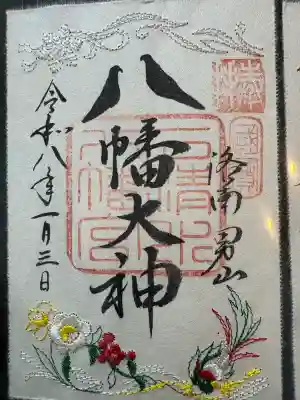 洛南 男山
八幡大神
令和八年一月三日
石清水
八幡宮